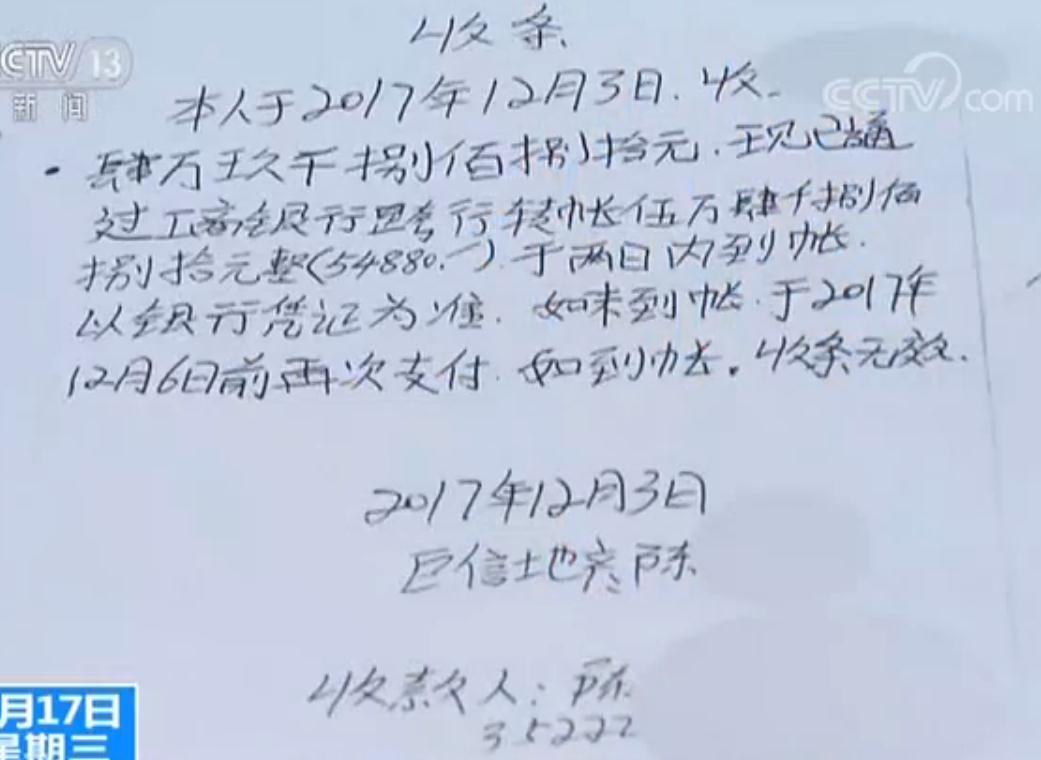 收条
CCTV 13
新闻
本人于2017年12月3日.收
CCTV.com
肆万玖千捌佰捌拾元.现已通
过工商银行跨行转帐伍万肆千捌佰
捌拾元整(54880.-).于两日内到帐.
以银行凭证为准.如未到帐.于2017年
12月6日前再次支付.如到帐.收条无效.
2017年12月3日
巨信地产 陈
收款人:陈
35222
月17日
星期三